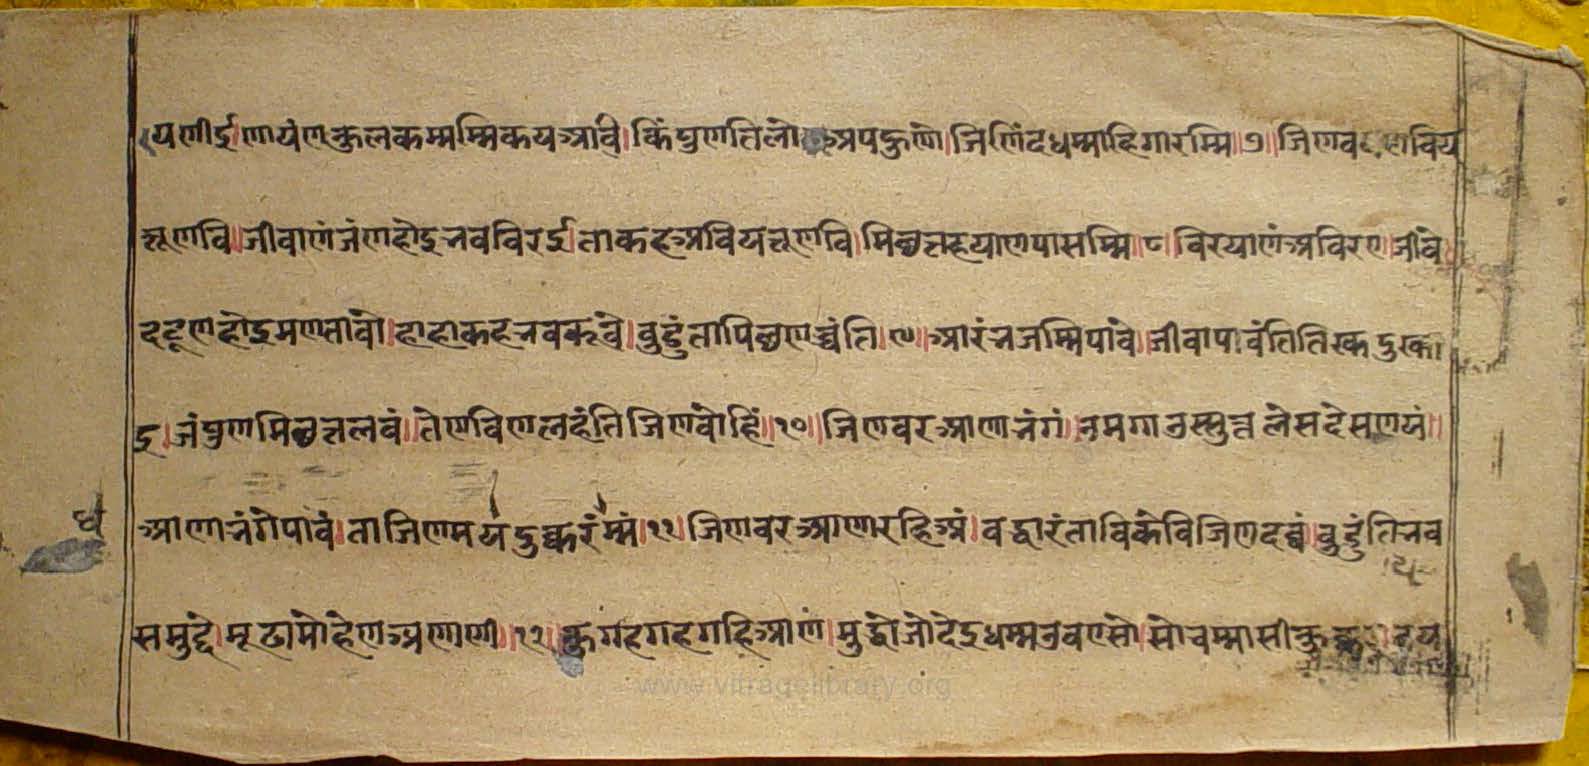 यणीई।णायंणकुलकम्मम्मिकयआवि।किंपुणतिलो अपहुणो।जिणिंदधम्माहिगारम्मि॥७॥जिणव णविय
न्नूणवि॥जीवाणंजंणहोइनवविरई।ताकहअवियन्नूणवि।मिछत्तहयाणपासम्मि॥८।विरयाणंअविरए।जीवे
दट्ठूणहोइमणतावो।हाहाकहनवकूवे।वुडुंतापिछणच्चंति।९॥आरंनजम्मिपावे।जीवापावंतितिरकदुरका
इ।जंपुणमिछत्तलवं।तेणविणलहंतिजिणवोहिं॥१०॥जिणवरआणानंगं।उमगाउस्सुत्तलेसदेसणयं॥
आणानंगेपावं।ताजिणमयंदुक्करंम्मं।११।जिणवरआणारहिअं।वद्वारंताविकेविजिणदव्वं।वुडुंतिनव
समुद्दे।मूढामोहेणअणाणी॥१२॥कुगहगहगहिआणं।मुद्धोजोदेइधम्मउवएसो।सोचम्मासीकुक्कु
www.vitragelibrary.org